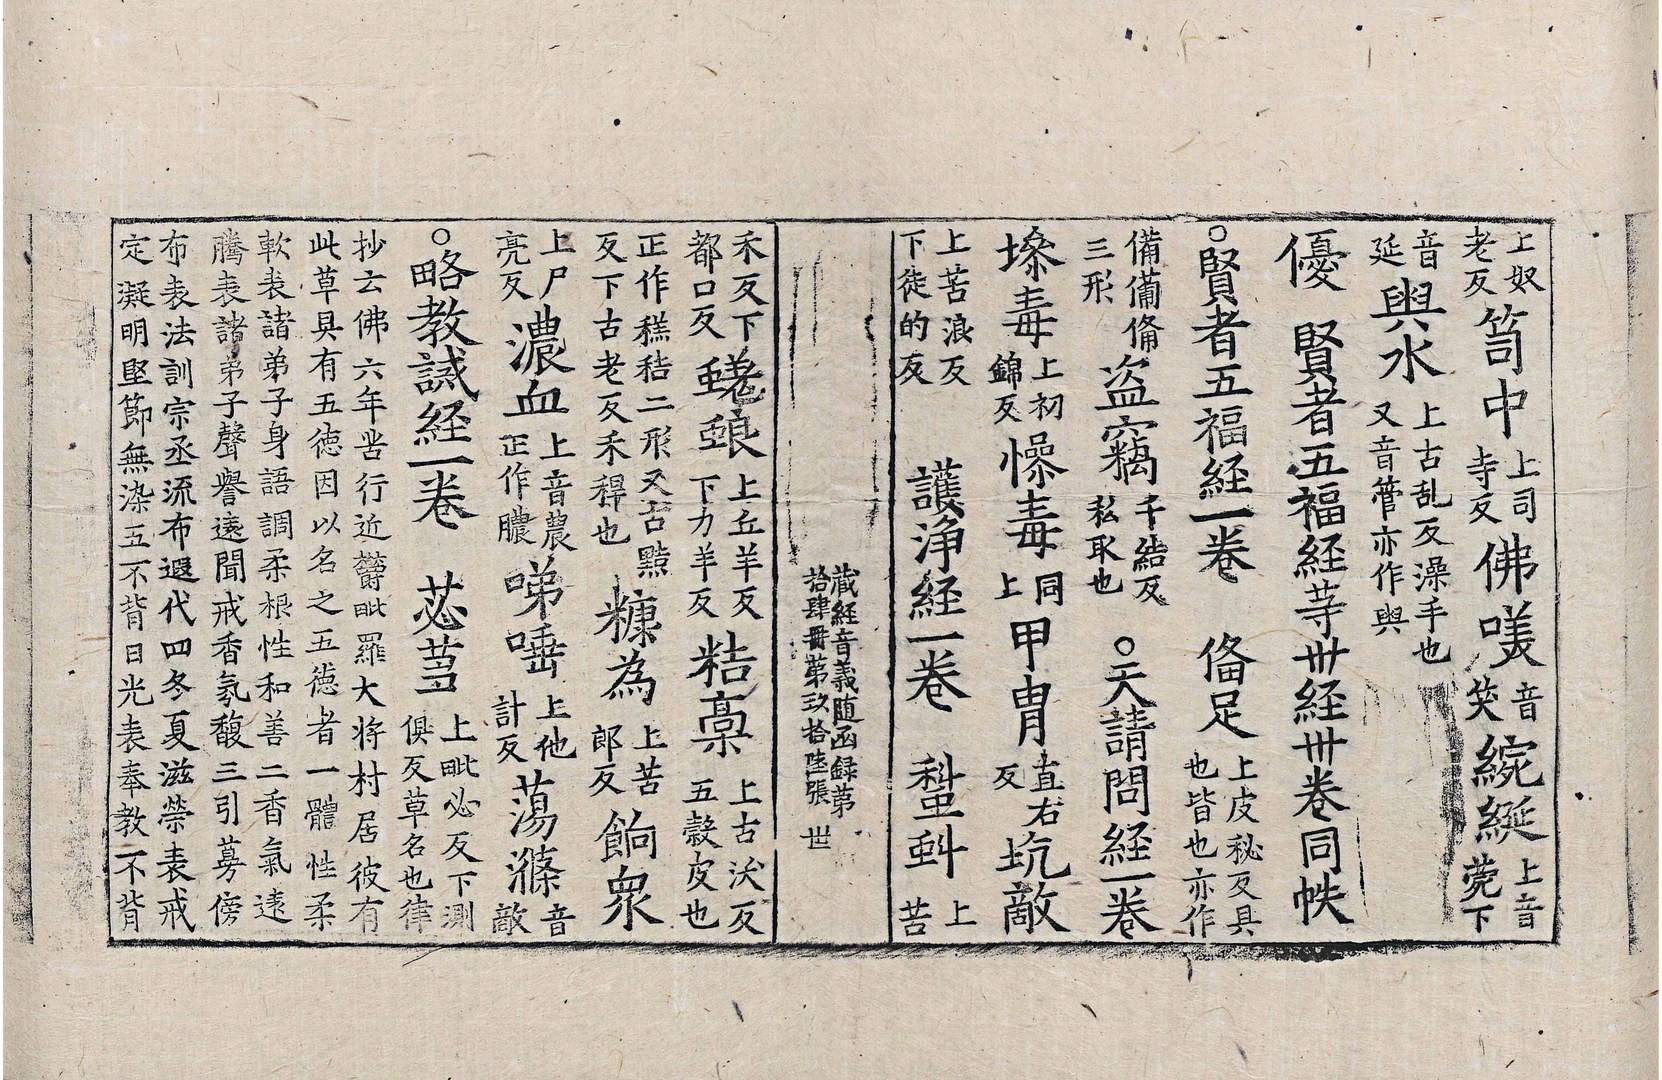 上奴老反笥中上司寺反佛㗛音笑綩綖上音菀下
音延與水上古乱反澡手也又音管亦作與
優　賢者五福経等丗経丗卷同帙
○賢者五福経一卷　俻足上皮秘反具也皆也亦作
備僃俻三形盗竊千結反私取也○天請問経一卷
墋毒上初錦反懆毒同上甲胄直右反坑敵
上苦浪反下徒的反　護浄経一卷　蝌蚪上苦
藏経音義随函録第拾肆冊第玖拾陸張　世
禾反下都口反蜣蜋上丘羊反下力羊反秸稾上古汱反五糓皮也
正作稭秸二形又古黠反下古老反禾稈也　糠為上苦郎反餉衆
上尸亮反濃血上音農正作膿唏唾上他計反蕩滌音敵
○略教誡経一卷　苾蒭上毗必反下測俱反草名也律
抄云佛六年苦行近欝毗羅大將村居彼有
此草具有五徳因以名之五徳者一體性柔
軟表諸弟子身語調柔根性和善二香氣逺
騰表諸弟子聲譽逺聞戒香氛馥三引蔓傍
布表法訓宗丞流布遐代四冬夏滋榮表戒
定凝明堅節無染五不背日光表奉教不背